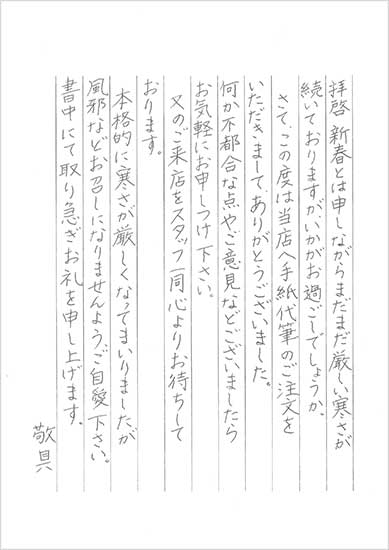 拝啓 新春とは申しながらまだまだ厳しい寒さが
続いておりますがいかがお過ごしでしょうか。
さて、この度は当店へ手紙代筆のご注文を
いただきまして、ありがとうございました。
何か不都合な点やご意見などございましたら
お気軽にお申しつけ下さい。
又のご来店をスタッフ一同心よりお待ちして
おります。
本格的に寒さが厳しくなってまいりましたが
風邪などお召しになりませんよう、ご自愛下さい。
書中にて取り急ぎお礼を申し上げます。
敬具